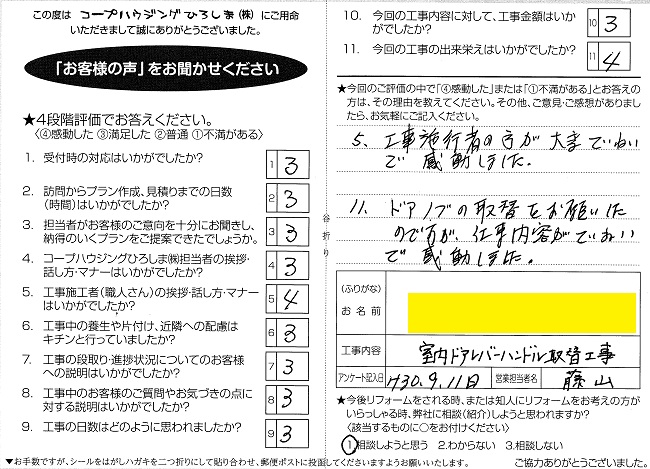 この度は コープハウジングひろしま(株) にご用命
いただきまして誠にありがとうございました。
「お客様の声」をお聞かせください
★4段階評価でお答えください。
〈④感動した ③満足した ②普通 ①不満がある〉
1. 受付時の対応はいかがでしたか?
1 3
2. 訪問からプラン作成、見積りまでの日数
(時間)はいかがでしたか?
2 3
3. 担当者がお客様のご意向を十分にお聞きし、
納得のいくプランをご提案できたでしょうか。
3 3
4. コープハウジングひろしま㈱担当者の挨拶・
話し方・マナーはいかがでしたか?
4 3
5. 工事施工者(職人さん)の挨拶・話し方・マナー
はいかがでしたか?
5 4
6. 工事中の養生や片付け、近隣への配慮は
キチンと行っていましたか?
6 3
7. 工事の段取り・進捗状況についてのお客様
への説明はいかがでしたか?
7 3
8. 工事中のお客様のご質問やお気づきの点に
対する説明はいかがでしたか?
8 3
9. 工事の日数はどのように思われましたか?
9 3
谷折り
10. 今回の工事内容に対して、工事金額はいか
がでしたか?
10 3
11. 今回の工事の出来栄えはいかがでしたか?
11 4
★今回のご評価の中で「④感動した」または「①不満がある」とお答えの
方は、その理由を教えてください。その他、ご意見・ご感想がありまし
たら、お気軽にご記入ください。
5. 工事施行者の方が大変ていねい
で感動しました。
11. ドアノブの取替をお願いした
のですが、仕事内容がていねい
で感動しました。
(ふりがな)
お名前
工事内容 室内ドアレバーハンドル取替工事
アンケート記入日 H30.9.11日 営業担当者名 藤山
★今後リフォームをされる時、または知人にリフォームをお考えの方が
いらっしゃる時、弊社に相談(紹介)しようと思われますか?
〈該当するものに○をお付けください〉
①相談しようと思う 2.わからない 3.相談しない
▼お手数ですが、シールをはがしハガキを二つ折りにして貼り合わせ、郵便ポストに投函してくださいますようお願いいたします。
ご協力ありがとうございました。